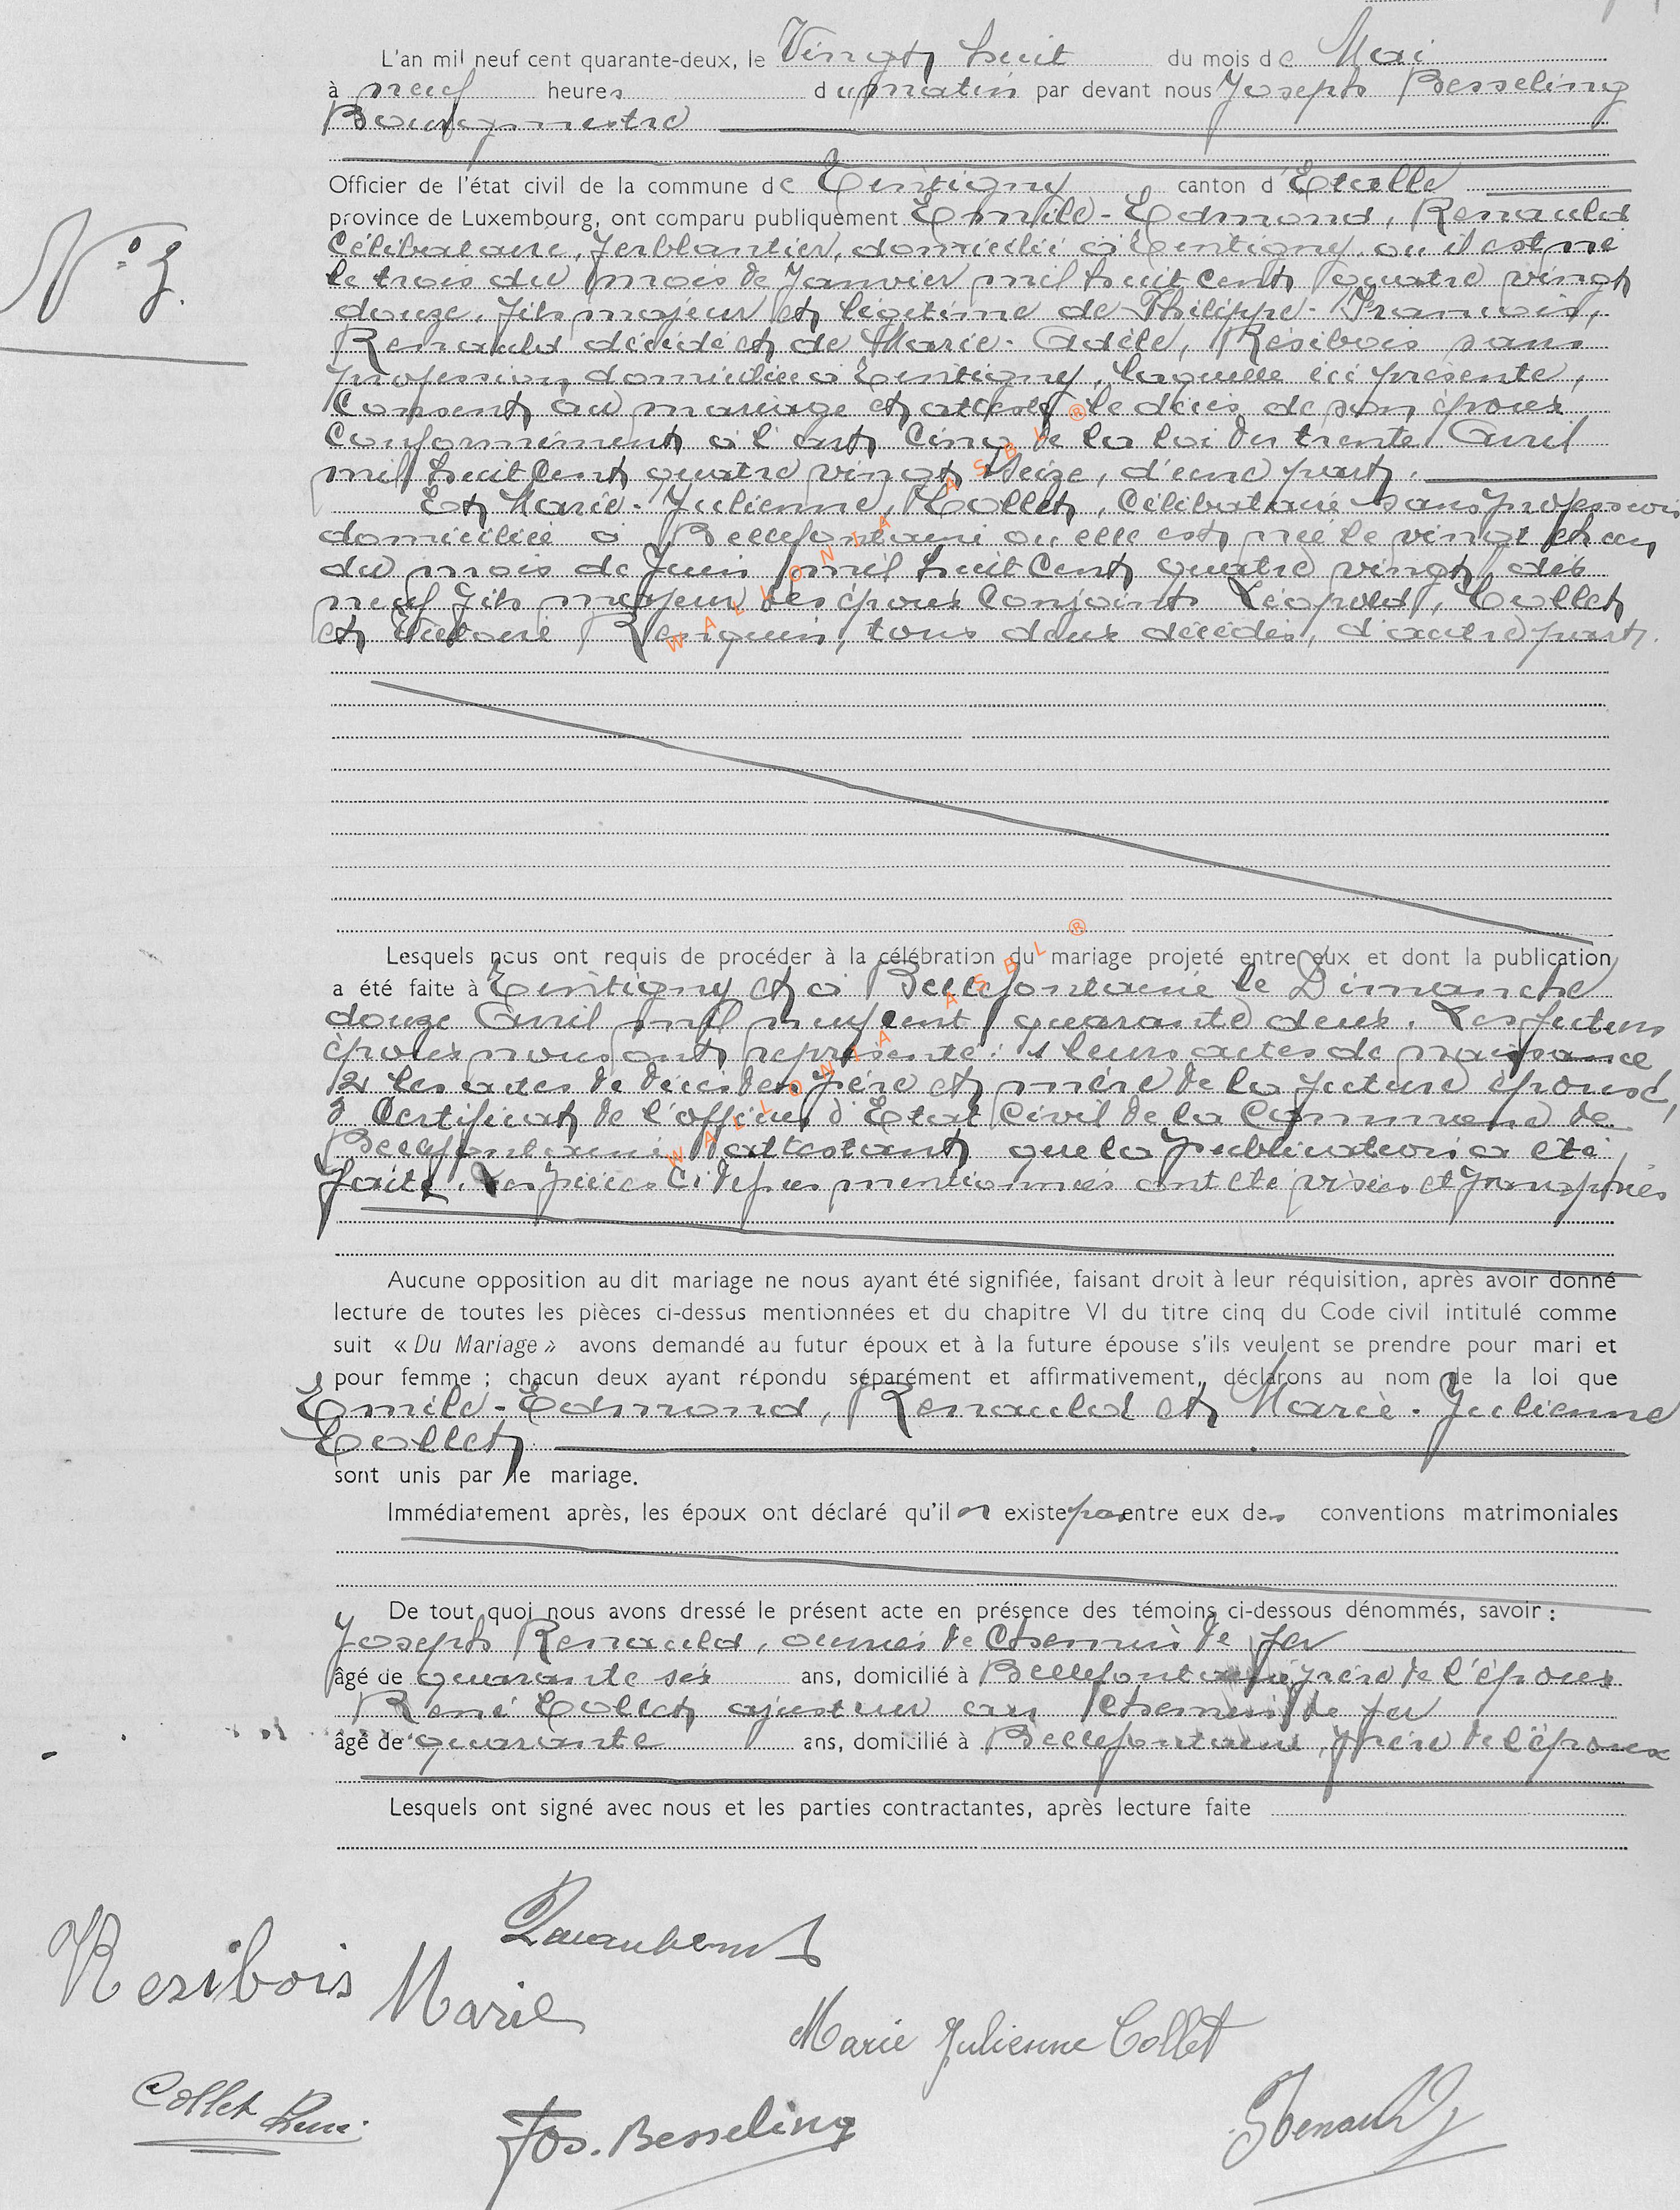 L'an mil neuf cent quarante-deux, le Vingt huit du mois de Mai
à neuf heures du matin par devant nous Joseph Besseling
Bourgmestre
Officier de l'état civil de la commune de Tintigny canton d'Etalle
province de Luxembourg, ont comparu publiquement Emile-Edmond, Renauld
N° 3.
Célibataire, ferblantier, domicilié à Tintigny, ou il est né
le trois du mois de Janvier mil huit Cent quatre vingt
douze, fils majeur et légitime de Philippe-François,
Renauld décédé et de Marie-Adèle, Résibois sans
profession domiciliée à Tintigny, laquelle ici présente,
Consent au mariage et atteste le décès de son époux
Conformément à l'art Cinq de la loi du trente Avril
mil huit Cent quatre vingt seize, d'une part.
Et Marie-Julienne, Collet, Célibataire sans profession
domiciliée à Bellefontaine où elle est née le vingt et un
du mois de Juin mil huit Cent quatre vingt dix
neuf fils majeur des époux Conjoints Léopold, Collet
et Victorie tous deux décédés, d'autre part.
Lesquels nous ont requis de procéder à la célébration du mariage projeté entre eux et dont la publication
a été faite à Tintigny et à Bellefontaine le Dimanche
douze Avril mil neuf cent quarante deux. Les futurs
époux nous ont représenté: 1 leurs actes de naissance
2 les actes de décès des père et mère de la future épouse,
3 Certificat de l'officier d'Etat Civil de la Commune de
Bellefontaine attestant que la publication a été
faite. Les pièces ci dessus mentionnées ont été visées et
Aucune opposition au dit mariage ne nous ayant été signifiée, faisant droit à leur réquisition, après avoir donné
lecture de toutes les pièces ci-dessus mentionnées et du chapitre VI du titre cinq du Code civil intitulé comme
suit « Du Mariage » avons demandé au futur époux et à la future épouse s'ils veulent se prendre pour mari et
pour femme ; chacun deux ayant répondu séparément et affirmativement, déclarons au nom de la loi que
Emile-Edmond, Renauld et Marie-Julienne
Collet
sont unis par le mariage.
Immédiatement après, les époux ont déclaré qu'il n existe pas entre eux des conventions matrimoniales
De tout quoi nous avons dressé le présent acte en présence des témoins ci-dessous dénommés, savoir :
Joseph Renauld, ouvrier de Chemin de fer
âgé de quarante six ans, domicilié à Bellefontaine frère de l'époux
René Collet ajusteur au Chemin de fer
âgé de quarante ans, domicilié à Bellefontaine, frère de l'épouse
Lesquels ont signé avec nous et les parties contractantes, après lecture faite
Resibois Marie
Marie Julienne Collet
Collet René
Jos. Besseling
JRenauld
WALLONIA ASBL ®
WALLONIA ASBL ®